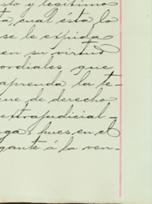 sto y legítimo
ta, cual ésta lo
se le expida
en su virtud
ordiales que
aprenda la te-
que de derecho
extrajudicial-
ga, pues, en el
gante á la ven-